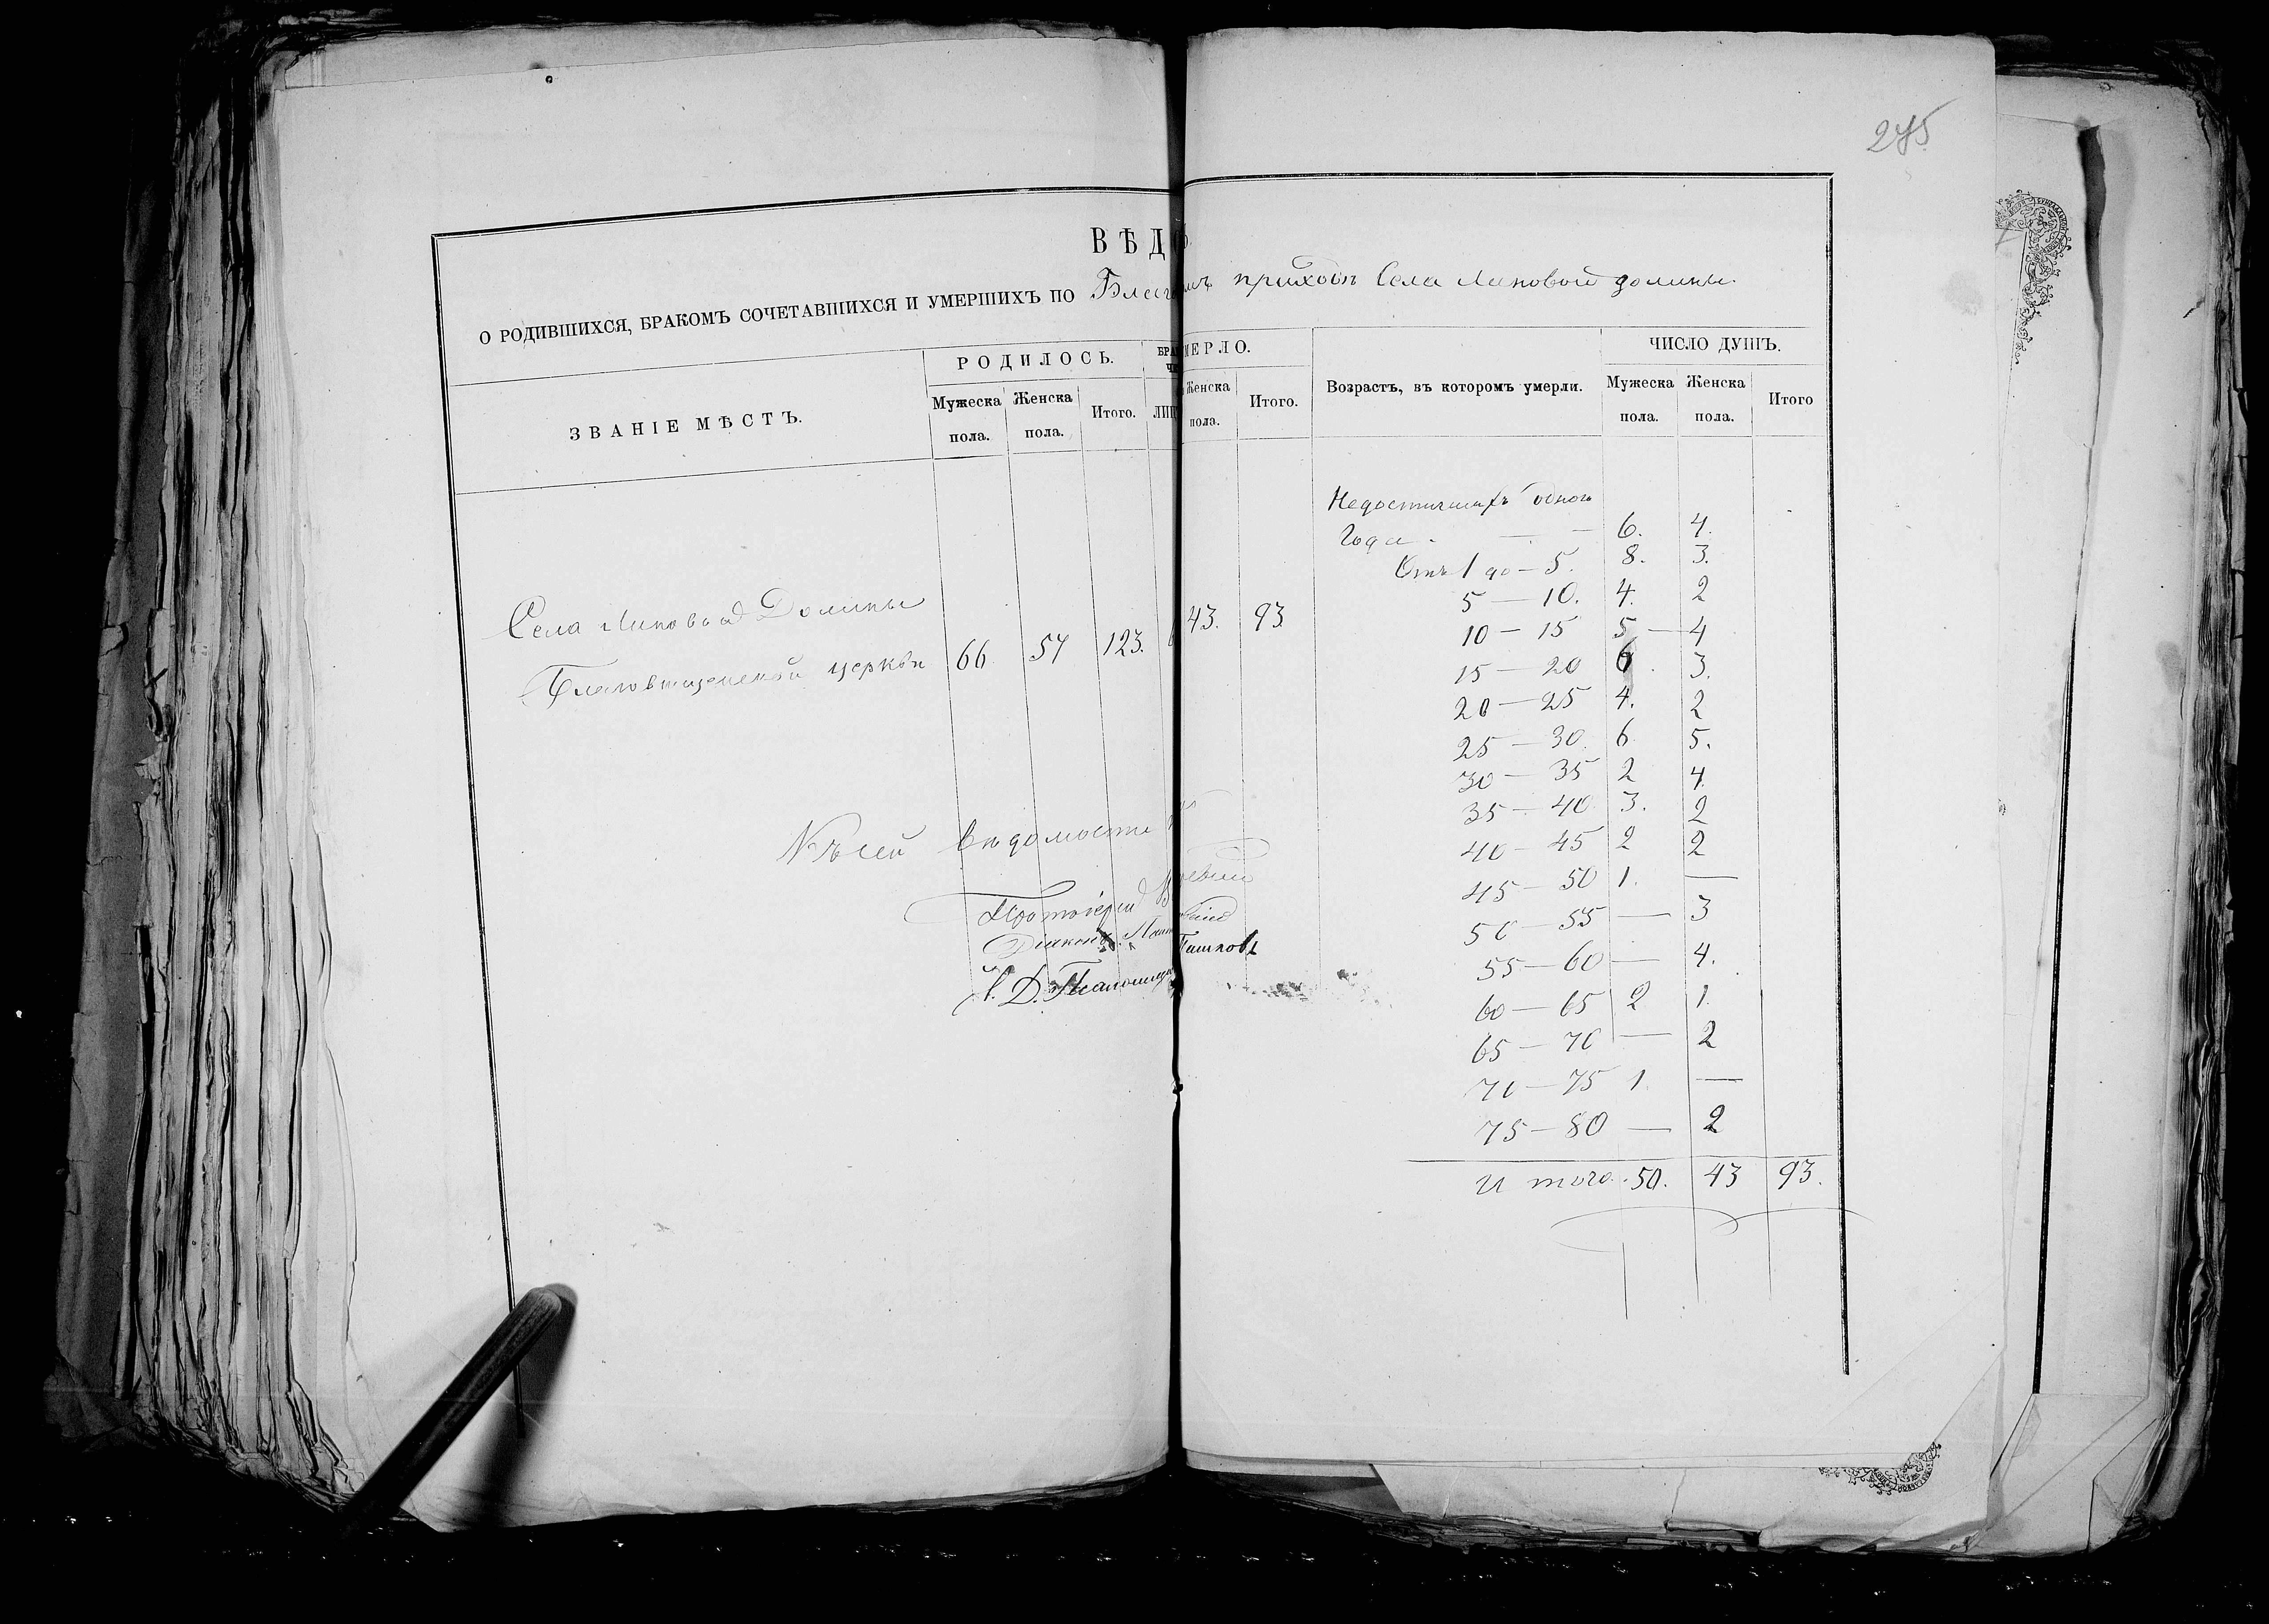 275
ВѢД
О РОДИВШИХСЯ, БРАКОМЪ СОЧЕТАВШИХСЯ И УМЕРШИХЪ ПО Благ мъ приходѣ Села Липовой долины.
РОДИЛОСЬ. БРА МЕРЛО. ЧИСЛО ДУШЪ.
ЗВАНІЕ МѢСТЪ. Мужеска пола. Женска пола. Итого. Женска пола. Итого. Возрастъ, въ которомъ умерли. Мужеска пола. Женска пола. Итого
Недостигшихъ одного
Года — — 6. 4.
Отъ 1 до — 5. 8. 3.
5 — 10. 4. 2
10 — 15 5 — 4
15 — 20 6. 3.
20 — 25 4. 2
25 — 30. 6 5.
30 — 35 2 4.
35 — 40. 3. 2
40 — 45 2 2
45 — 50 1. —
50 — 55 — 3
55 — 60 — 4.
60 — 65 2 1.
65 — 70 — 2
70 — 75 1. —
75 — 80 — 2
Итого. 50. 43 93.
Села Липовой Долины
Благовѣщенской церкви 66. 57 123. 43. 93.
Къ сей вѣдомости
Протоіерей
Діаконъ